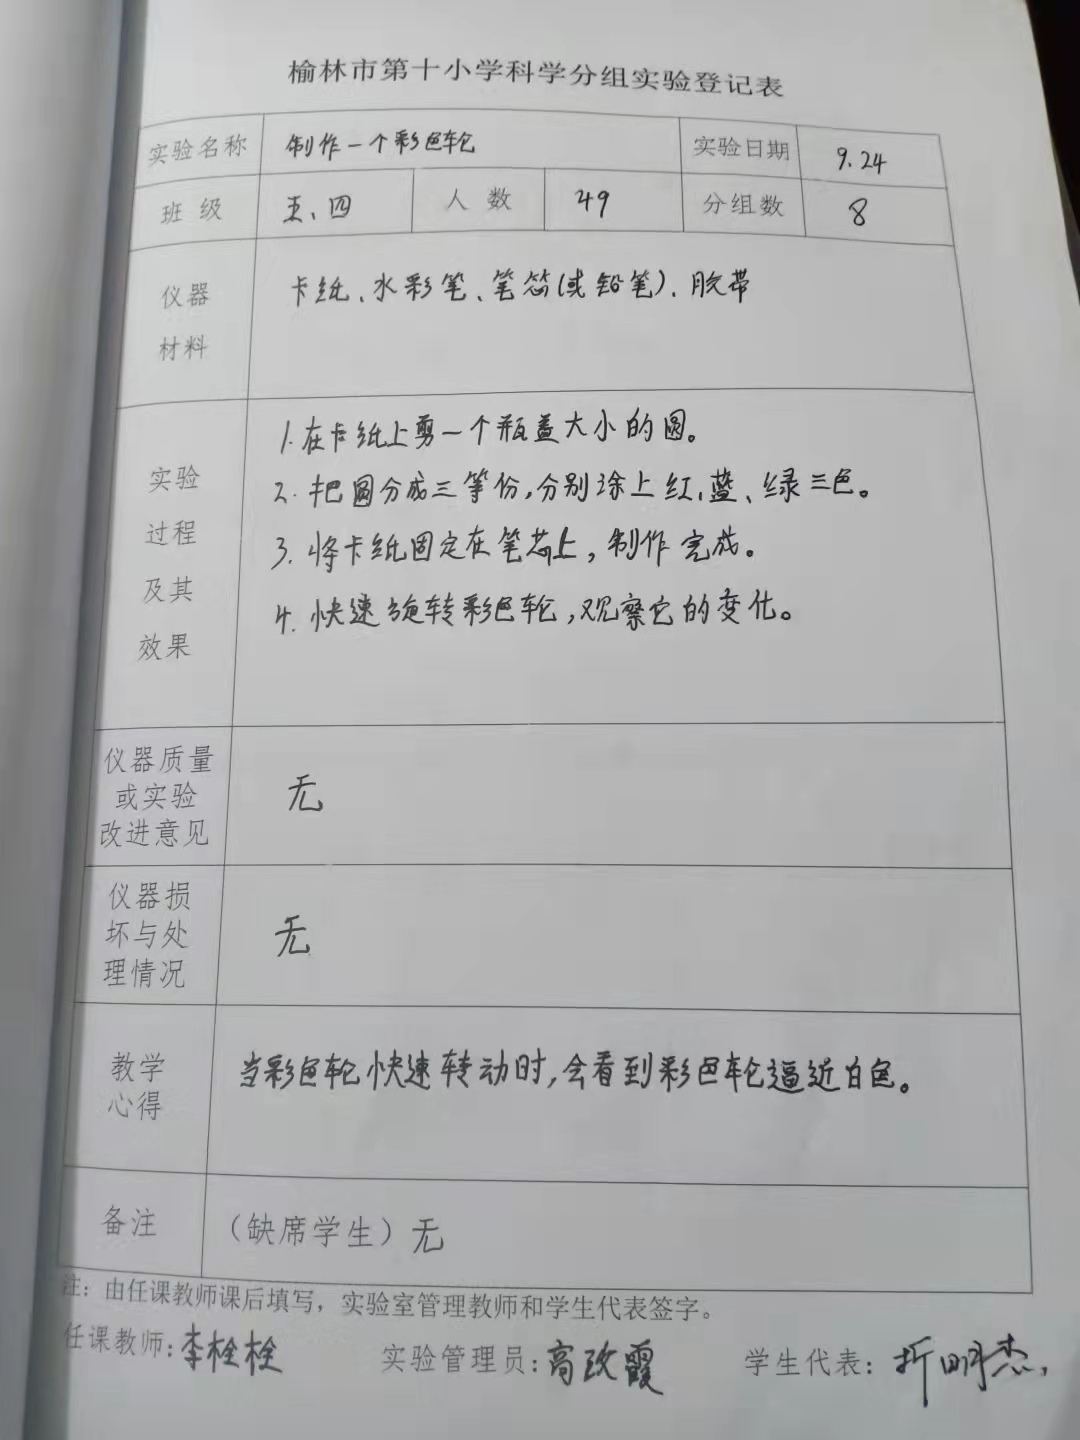 榆林市第十小学科学分组实验登记表
实验名称 制作一个彩色轮 实验日期 9.24
班级 五、四 人数 49 分组数 8
仪器
材料
卡纸、水彩笔、笔芯(或铅笔)、胶带
实验
过程
及其
效果
1.在卡纸上剪一个瓶盖大小的圆。
2.把圆分成三等份,分别涂上红、蓝、绿三色。
3.将卡纸固定在笔芯上,制作完成。
4.快速旋转彩色轮,观察它的变化。
仪器质量
或实验
改进意见
无
仪器损
坏与处
理情况
无
教学
心得
当彩色轮快速转动时,会看到彩色轮逼近白色。
备注 (缺席学生)无
注：由任课教师课后填写，实验室管理教师和学生代表签字。
任课教师:李栓栓 实验管理员:高改霞 学生代表:折明杰